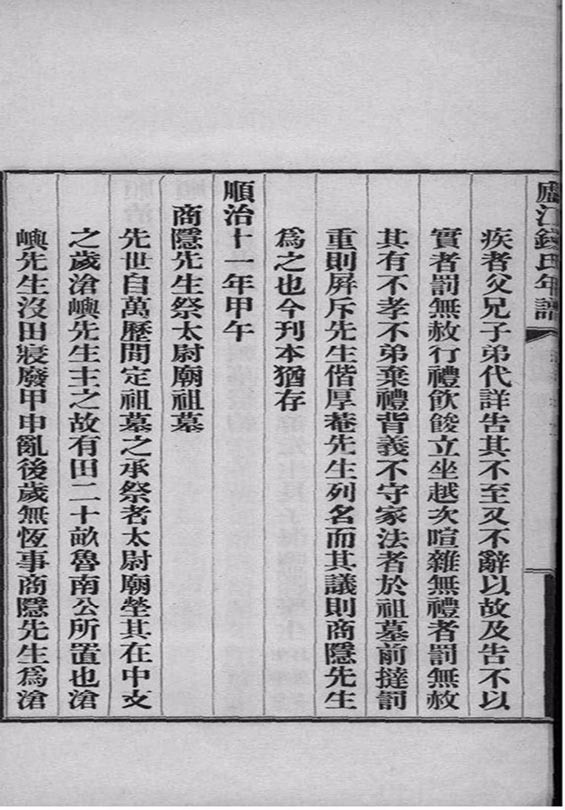 廬江錢氏年譜
疾者父兄子弟代詳告其不至又不辭以故及告不以
實者罰無赦行禮飲餕立坐越次喧雜無禮者罰無赦
其有不孝不弟棄禮背義不守家法者於祖墓前撻罰
重則屏斥先生偕厚菴先生列名而其議則商隱先生
爲之也今刊本猶存
順治十一年甲午
商隱先生祭太尉廟祖墓
先世自萬歷間定祖墓之承祭者太尉廟塋其在中支
之歲滄嶼先生主之故有田二十畝魯南公所置也滄
嶼先生沒田寢廢甲申亂後歲無恆事商隱先生爲滄